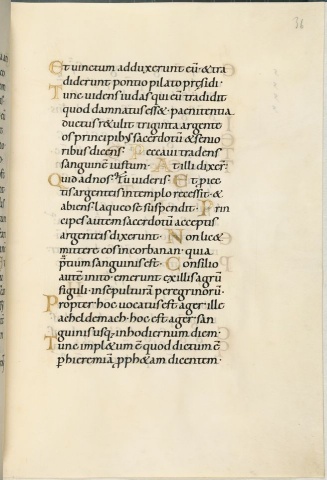 36
Et uinctum adduxerunt eū·&tra
diderunt pontio pilato pręsidi·
Tunc uidens iudas qui eū tradidit
quod damnatus ess&· paenitentia
ductus r&ulit triginta argente
os principib; sacerdotū &senio
ribus dicens· Peccaui tradens
sanguinē iustum· At illi dixer̄·
quid ad nos? tu uideris· Et proiec
tis argenteis in templo recessit·&
abiens laqueo se suspendit· Prin
cipes autem sacerdotū acceptis
argenteis dixerunt· Non lic&
mittere eos in corbanan· quia
p̄tium sanguinis est· Consilio
autē inito emerunt ex illis agrū
figuli· in sepulturā peregrinorū·
Propter hoc uocatus est ager ille
acheldemach· hoc est ager san
guinis usq; in hodiernum diem·
Tunc impl&um ē quod dictum ē
p hieremiā pph&am dicentem·